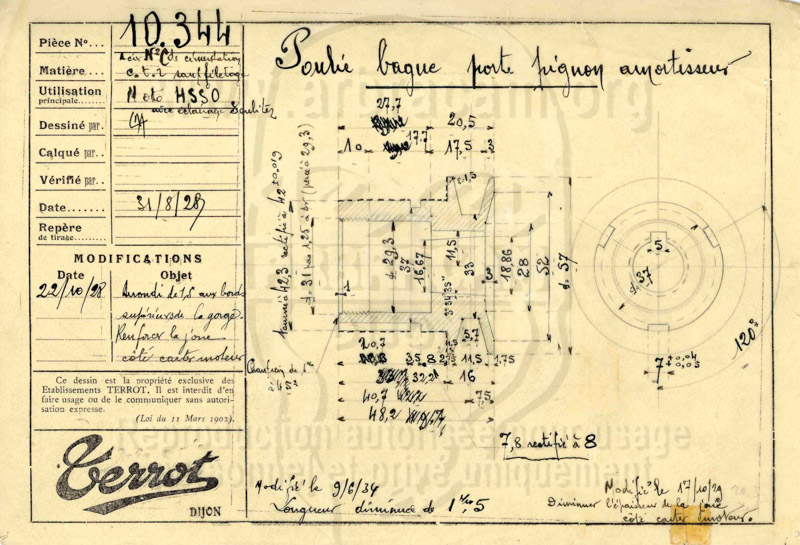 Pièce N°... 10.344
Matière...
c.t.2 sauf filetage
Utilisation principale... Moto HSSO
avec éclairage Soubitez
Dessiné par.
Calqué par..
Vérifié par..
Date....... 31/8/28
Repère
de tirage..........
MODIFICATIONS
Date Objet
22/10/28 Arrondi de 1,5 aux bords
supérieurs de la gorge.
Renforcer la joue
côté carter moteur
Ce dessin est la propriété exclusive des
Etablissements TERROT. Il est interdit d'en
faire usage ou de le communiquer sans autori-
sation expresse.
(Loi du 11 Mars 1902).
Terrot
DIJON
Poulie bague porte pignon amortisseur
27,7
20,5
17.7
10
17,5
3
r:1,5
d. 29,3
37
16,67
14,5
33
18,86
28
52
d. 57
1
3°34'35"
5
d. 37
120°
7 +0,04
+0,03
Chanfrein de 1
20,7
5,7
35,8
11,5
1,75
32,2
16
40,7
7,5
48,2
7,8 rectifié à 8
Modifié le 9/6/34
Longueur diminuée de 1,5
Modifié le 17/10/29
Diminuer l'épaisseur de la joue
côté carter moteur.
Reproduction autorisée pour usage
personnel et privé uniquement